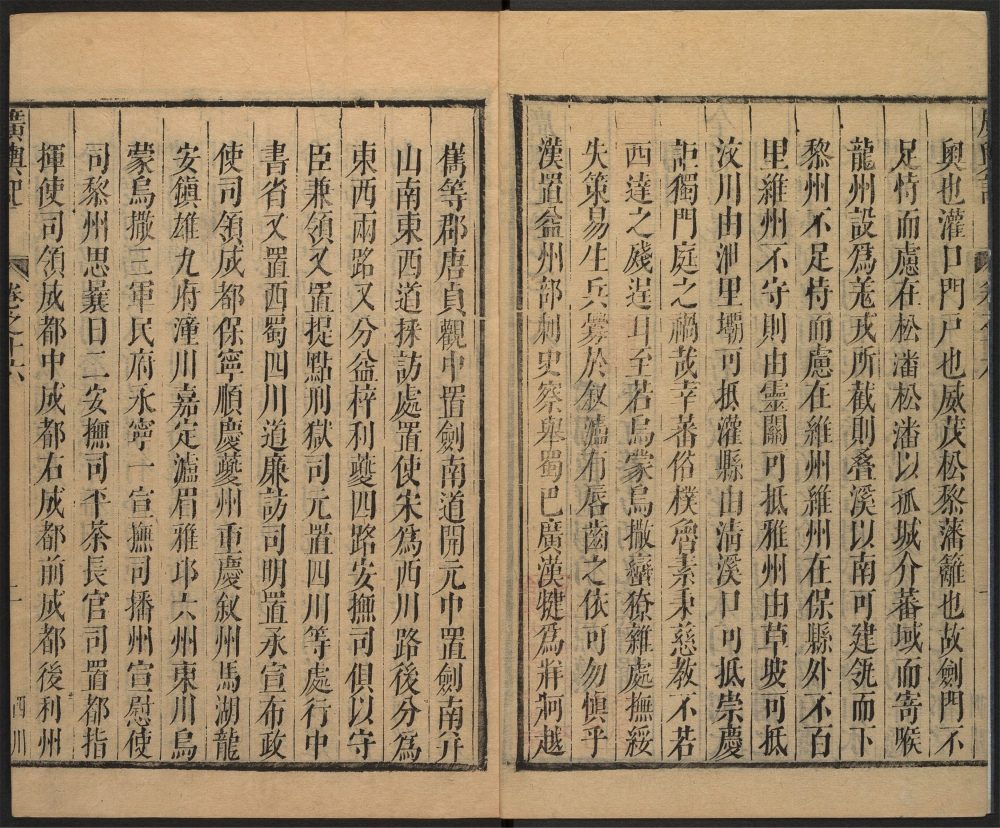 奧也灌口門戶也威茂松黎藩籬也故劍門不
足恃而慮在松潘松潘以孤城介蕃域而寄喉
龍州設爲羗戍所截則叠溪以南可建瓴而下
黎州不足恃而慮在維州維州在保縣外不百
里維州不守則由靈關可抵雅州由草坡可抵
汶川由泄里壩可抵灌縣由清溪口可抵崇慶
詎獨門庭之禍哉幸蕃俗樸魯素秉慈教不若
西達之殘逞耳至若烏蒙烏撒蠻獠雜處撫綏
失策易生兵釁於叙瀘有唇齒之依可勿愼乎
漢置益州部刺史察舉蜀巴廣漢犍爲牂牁越
嶲等郡唐貞觀中置劍南道開元中置劍南并
山南東西道採訪處置使宋爲西川路後分爲
東西兩路又分益梓利夔四路安撫司俱以守
臣兼領又置提點刑獄司元置四川等處行中
書省又置西蜀四川道廉訪司明置承宣布政
使司領成都保寧順慶夔州重慶叙州馬湖龍
安鎮雄九府潼川嘉定瀘眉雅邛六州東川烏
蒙烏撒三軍民府永寧一宣撫司播州宣慰使
司黎州思曩日二安撫司平茶長官司置都指
揮使司領成都中成都右成都前成都後利州
廣輿記
卷之十六
一
四川